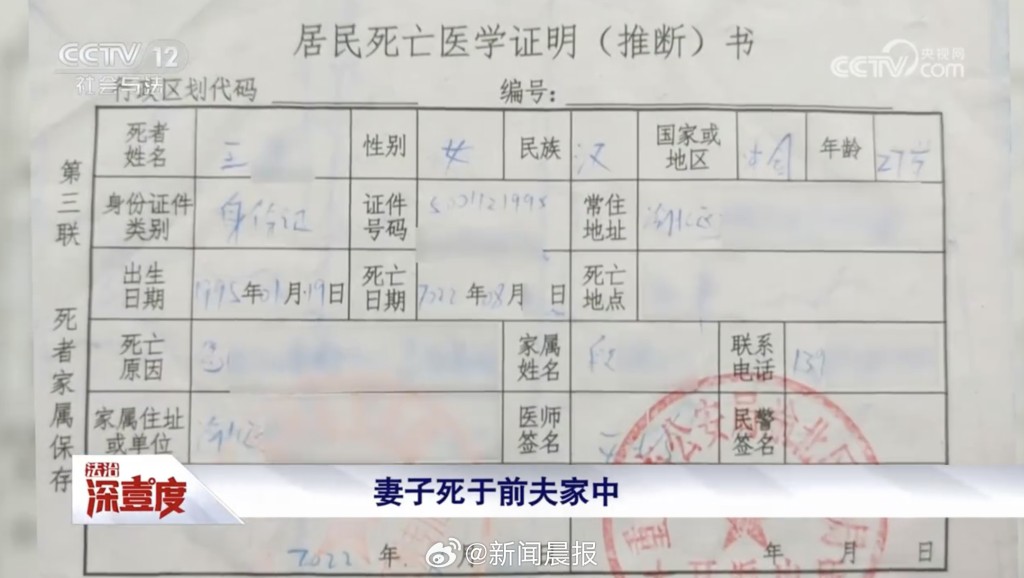 CCTV 12
社会与法
央视网
CCTV.com
居民死亡医学证明（推断）书
行政区划代码
编号：
第三联
死者家属保存
死者姓名 王 性别 女 民族 汉 国家或地区 中国 年龄 27岁
身份证件类别 身份证 证件号码 常住地址 渝北区
出生日期 1995年01月19日 死亡日期 2022年08月 日 死亡地点
死亡原因 家属姓名 段 联系电话 139
家属住址或单位 渝北区 医师签名 民警签名
法治
深壹度
妻子死于前夫家中
2022年 月 日
年 月 日
@新闻晨报